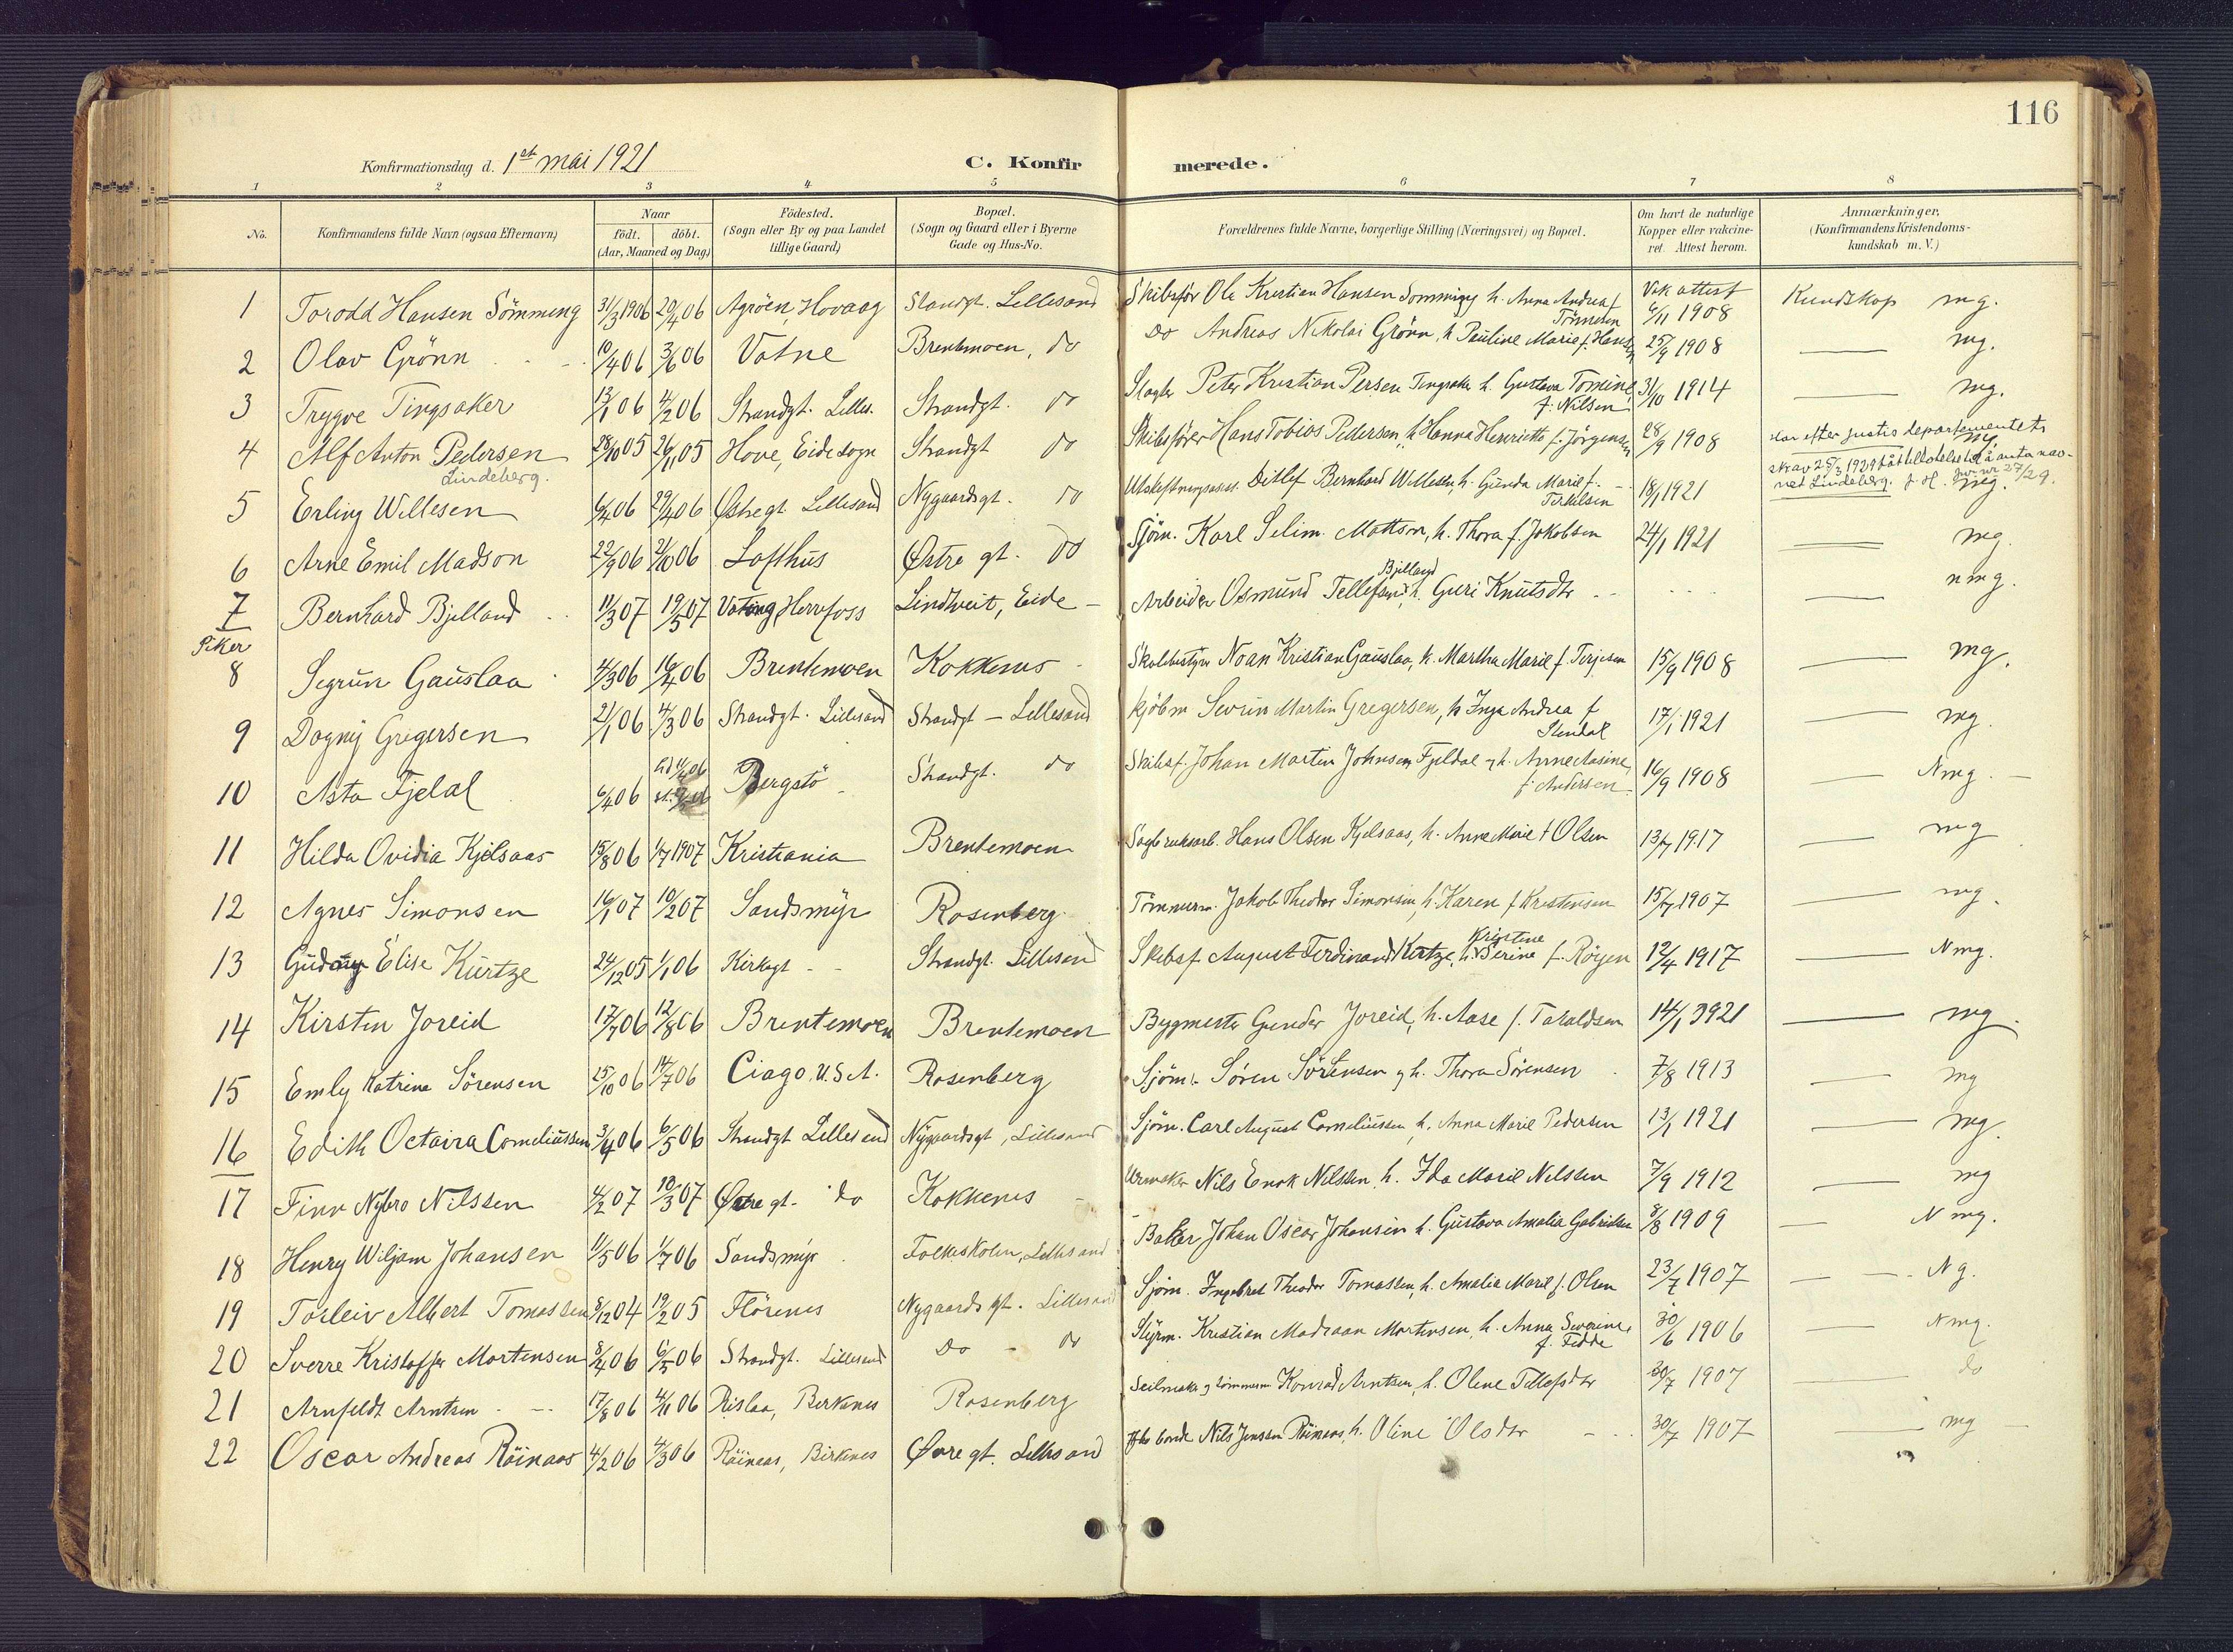 116
Konfirmationsdag d. 1st mai 1921 C. Konfir merede.
1 2 3 4 5 6 7 8
No. Konfirmandens fulde Navn (ogsaa Efternavn) Naar födt. döbt. (Aar, Maaned og Dag) Födested. (Sogn eller By og paa Landet tillige Gaard) Bopæl. (Sogn og Gaard eller i Byerne Gade og Hus-No. Forældrenes fulde Navne, borgerlige Stilling (Næringsvei) og Bopæl. Om havt de naturlige Kopper eller vakcineret. Attest herom. Anmærkninger. (Konfirmandens Kristendomskundskab m. V.)
1 Torodd Hansen Sömming 31/3 1906 20/4 06 Agröen, Hovaag Standgt. Lillesand Skibsför Ole Kristian Hansen Sommigg h. Anna Andrea f Tönnesen Vak attest 6/11 1908 Kundskap mg.
2 Olav Grönn 10/4 06 3/6 06 Vatne Brentemoen, do do Andreas Nikolai Grönn, h Pauline Marie f. Hansen 25/9 1908 mg.
3 Trygve Tingsaker 13/1 06 4/2 06 Strandgt. Lilles. Strandgt. do Slagter Peter Kristian Persen Tingsaker h. Gustava Tomine f. Nilsen 31/10 1914 mg.
4 Alf Anton Pedersen Lindeberg. 28/10 05 26/11 05 Hove, Eide sogn Strandgt do Skibsförer Hans Tobias Pedersen, h Hanna Henriette f. Jörgensen 28/9 1908 mg. Har efter justisdepartementets skrav 25/3 1929 fåt tilladelse til å anta navnet Lindeberg. jvr nr 27/29.
5 Erling Willesen 6/4 06 29/4 06 Østregt. Lillesand Nygaardsgt. do Ditlef Bernhard Willesen, h. Gunda Marie f. Terkelsen 18/1 1921 mg.
6 Arne Emil Madson 22/9 06 21/10 06 Lofthus Østre gt. do Sjöm. Karl Selim Mattson, h. Thora f. Jakobsen 24/1 1921 mg.
7 Bernhard Bjelland 11/3 07 19/5 07 Herrefoss Lindtveit, Eide Arbeider Osmund Tellefsen Bjelland h. Guri Knutsdtr nmg.
Piker
8 Sigrun Gauslaa 4/3 06 16/4 06 Brentemoen Kokkenes Skolebestyrer Noan Kristian Gauslaa, h. Martha Marie f. Terjesen 15/9 1908 mg.
9 Dagny Gregersen 21/1 06 4/3 06 Strandgt. Lillesand Strandgt — Lillesand Kjöbm Severin Martin Gregersen, h Inga Andrea f Stendal 17/1 1921 mg.
10 Asta Fjelal 6/4 06 Bergstö Strandgt. do Skibsf. Johan Martin Johnsen Fjeldal og h. Anne Aasine, f. Andersen. 16/9 1908 Nmg.
11 Hilda Ovidia Kjelsaas 15/8 06 1/7 1907 Kristiania Brentemoen Sagbruksarb. Hans Olsen Kjelsaas, h. Anne Marie f Olsen 13/7 1917 mg
12 Agnes Simonsen 16/1 07 10/2 07 Sandsmyr Rosenberg Tömmerm. Jakob Theodor Simonsen, h. Karen f Kristensen 15/7 1907 mg.
13 Gudny Elise Kurtze 24/12 05 1/1 06 Kirkegt Strandgt. Lillesand Skibsf August Ferdinand Kurtze, h. Kristine Serine f. Röyen 12/4 1917 Nmg.
14 Kirsten Joreid 17/7 06 12/8 06 Brentemoen Brentemoen Bygmester Gunder Joreid, h. Aase f. Taraldsen 14/1 3921 mg.
15 Emly Katrine Sörensen 25/10 06 14/7 06 Ciago, U.S.A. Rosenberg Sjöm. Sören Sörensen og h. Thora Sörensen 7/8 1913 mg
16 Edith Octavia Corneliussen 3/4 06 6/5 06 Strandgt Lillesand Nygaardsgt, Lillesand Sjöm. Carl August Corneliussen h. Anna Marie Pedersen 13/1 1921 mg.
17 Finn Nybro Nilssen 4/2 07 10/3 07 Østre gt. do Kokkenes Urmaker Nils Enok Nilssen, h. Ida Marie Nilssen 7/9 1912 mg
18 Henry Wiljam Johansen 11/5 06 1/7 06 Sandsmyr Folkeskolen, Lillesand Baker Johan Oscar Johansen h. Gustava Amalia Gabrielsen 8/8 1909 Nmg.
19 Torleiv Albert Tomassen 8/12 04 19/2 05 Flörenes Nygaards gt. Lillesand Sjöm. Ingebret Theodor Tomassen, h. Amalia Marie f. Olsen 23/7 1907 Ng.
20 Sverre Kristoffer Mortensen 8/4 06 6/5 06 Strandgt. Lillesand Do - do Styrm. Kristian Madsaan Mortensen, h. Anna Severine f. Fedde 30/6 1906 Nmg.
21 Arnfeldt Arntsen 17/8 06 4/11 06 Rislaa, Birkenes Rosenberg Seilmaker og tömmerm. Konrad Arntsen, h. Oline Tellefsdtr 30/7 1907 do
22 Oscar Andreas Röinaas 4/2 06 4/3 06 Röinaas, Birkenes Øvre gt. Lillesand Nils Jenssen Röinaas, h. Oline Olsdtr 30/7 1907 mg